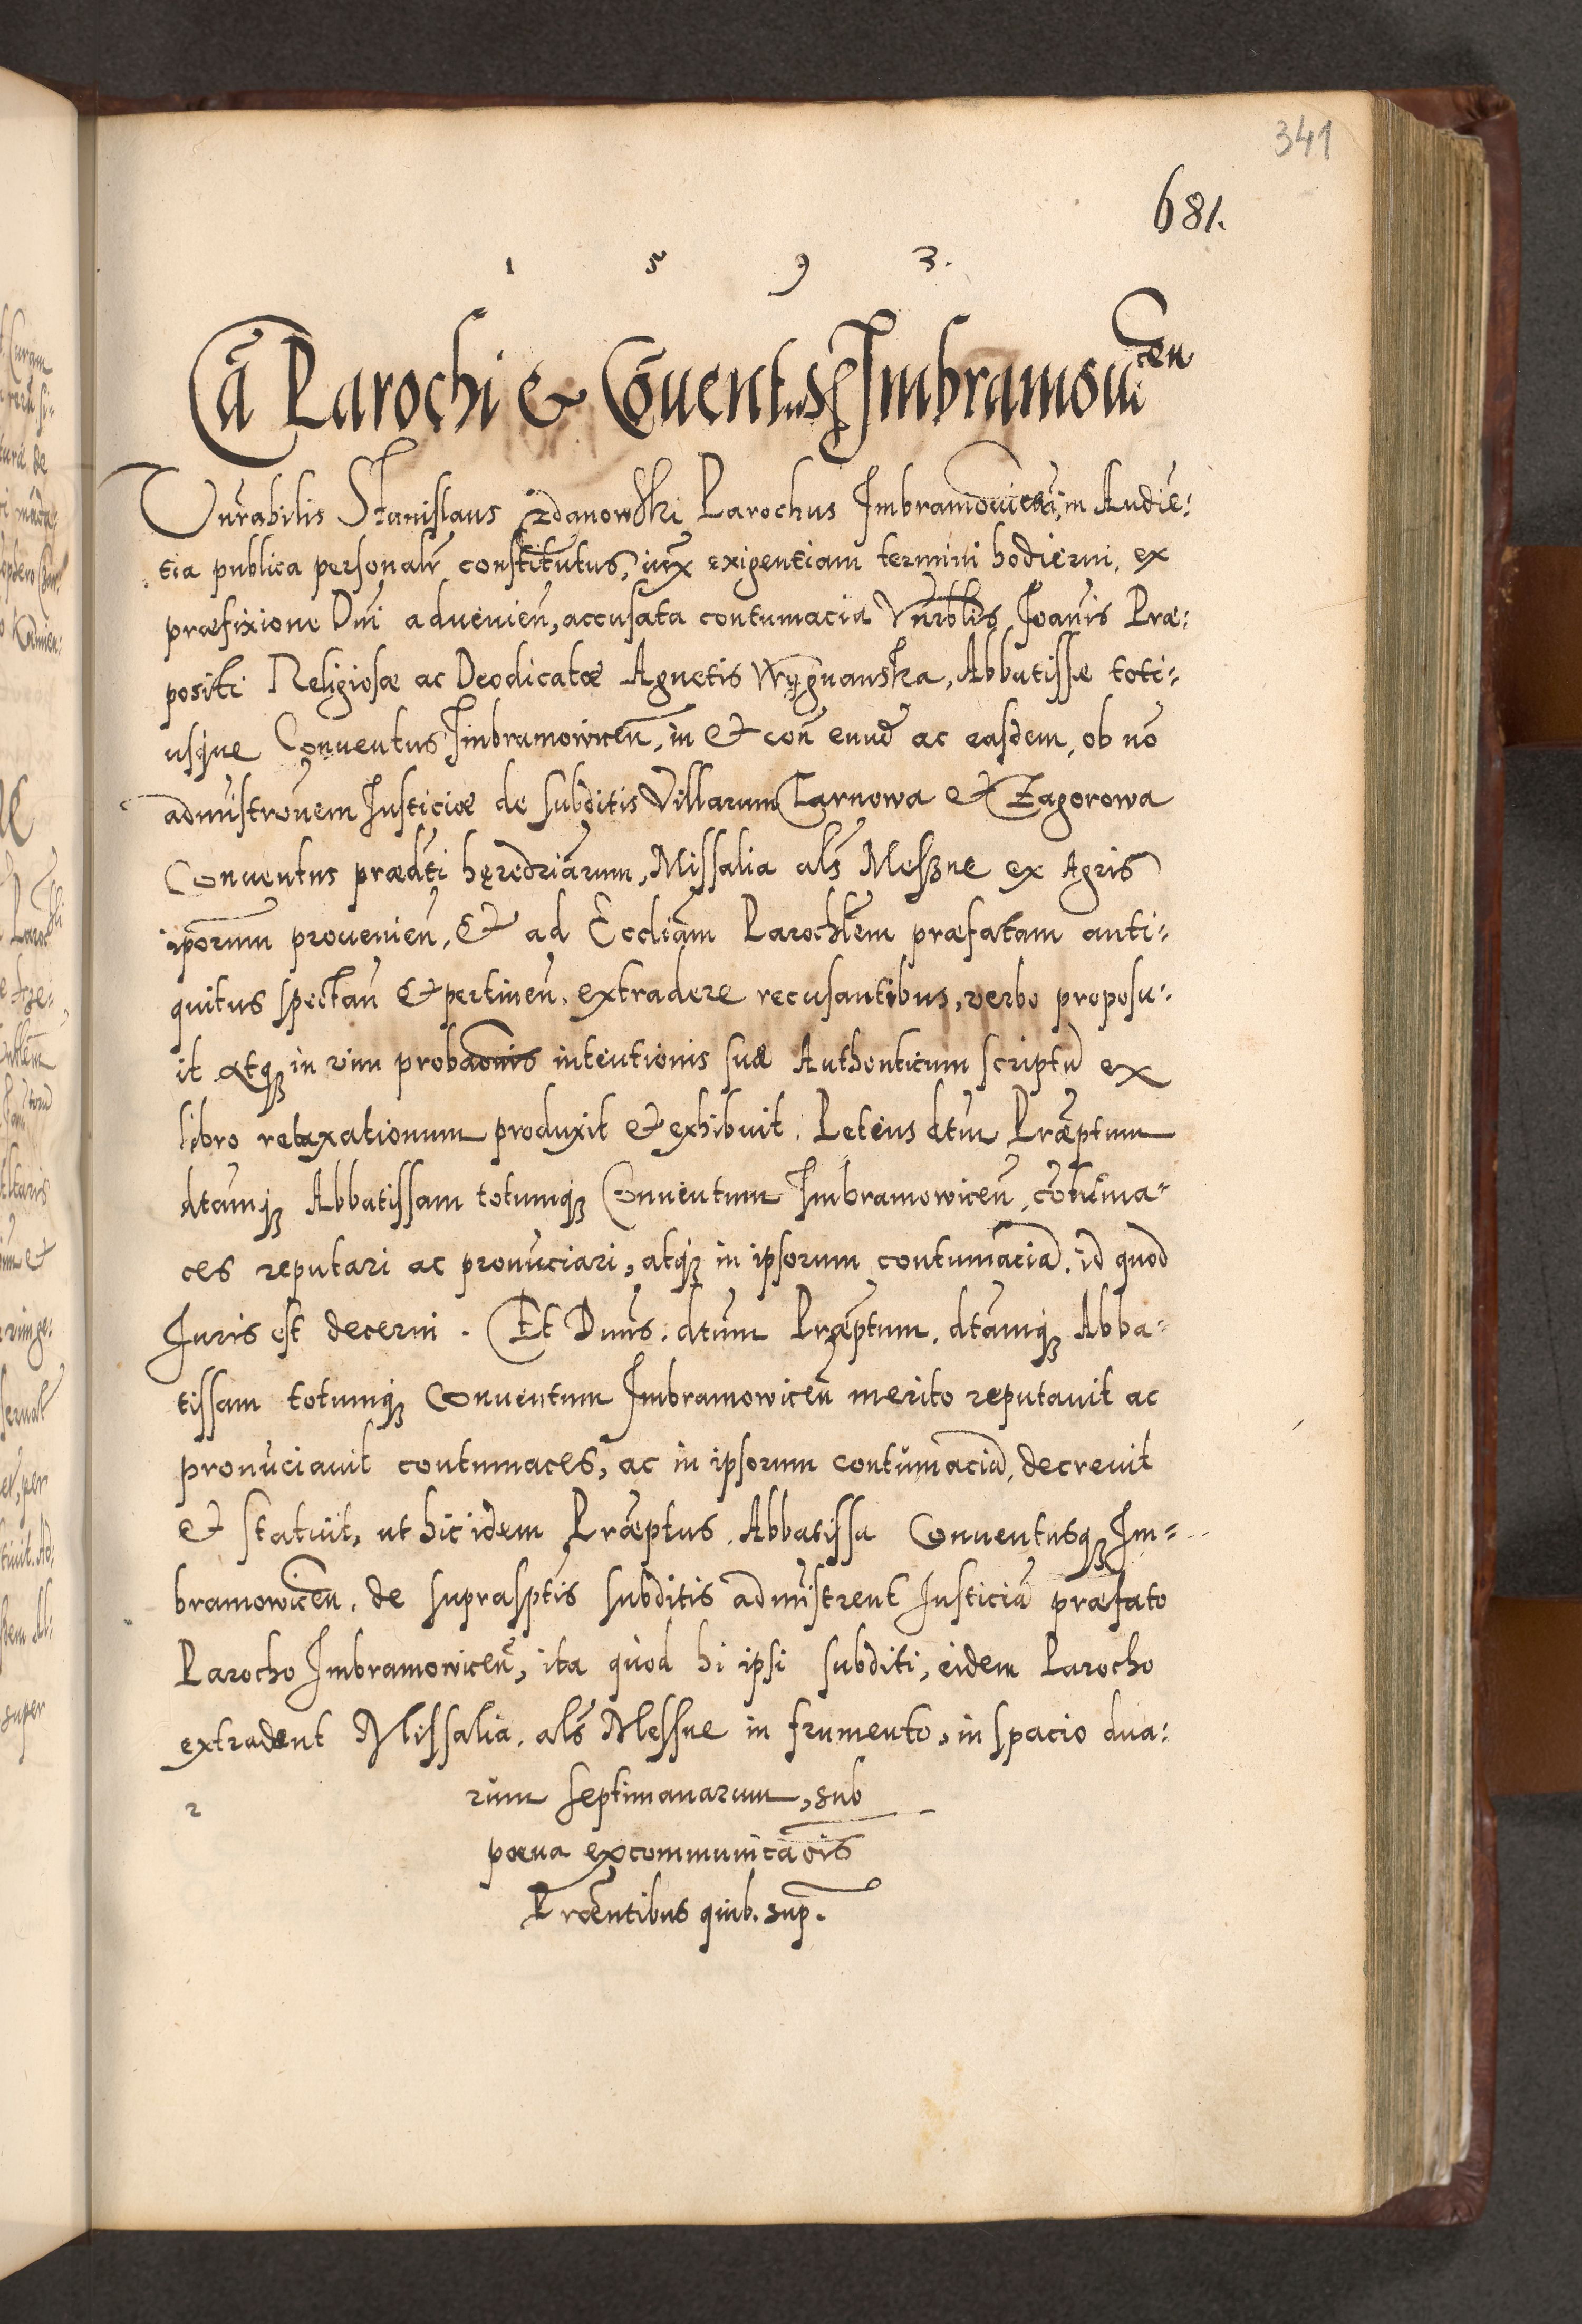 341
681.
1 5 9 3.
Cā Parochi & Cōuentusq̧ Imbramouicen
Vnrabilis Stanislaus Zdanowski Parochus Imbramouicen̄, in Audiē:
tia publica personalr̄ constitutus, iux̄ exigentiam termini hodierni, ex
præfixione Dni aduenien̄, accusata contumacia Vnrblis Joānis Præ:
positi Religiosæ ac Deodicatæ Agnetis Wÿgnanska, Abbatissæ toti:
usque Conuentus Imbramowicen̄, in & con̄ eund̄ ac easdem, ob nō
admīstrōnem Justiciæ de subditis Villarum Tarnowa & Zagorowa
Conuentus prædcti hęredriārum, Missalia als̄ Meszne ex Agris
ipōrum prouenien̄, & ad Eccliām Parochlēm præfatam anti:
quitus spectan̄ & pertinen̄, extradere recusantibus, verbo proposu:
it atq̧ in vim probaōnis intentionis suæ Authenticum scriptū ex
libro relaxationum produxit & exhibuit. Petens dtūm Præptum
dtāmq̧ Abbatissam totumq̧ Conuentum Imbramowicen̄, cōtuma:
ces reputari ac pronūciari, atq̧ in ipsorum contumaciā, id quod
Juris est decerni. Et Dnūs. dtūm Præptum, dtāmq̧ Abba:
tissam totumq̧ Conuentum Imbramowicen̄ merito reputauit ac
pronūciauit contumaces, ac in ipsorum contumaciā, decreuit
& statuit, ut hic idem Præptus, Abbatissa Conuentusq̧ Im:
bramowicen̄, de suprasptis subditis admīstrent Justiciā præfato
Parocho Imbramowicen̄, ita quod hi ipsi subditi, eidem Parocho
extradent Missalia, als̄ Messne in frumento, in spacio dua:
rum septimanarum, sub
pœna excommunicaōis
Præntibus quib. sup.